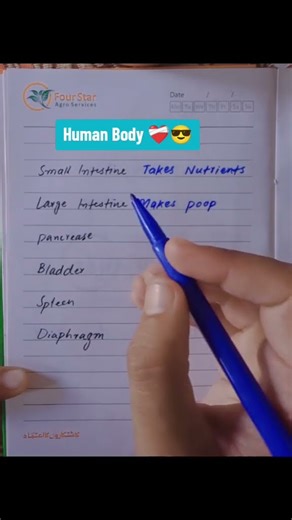 Four Star
Agro Services
Date / /
Human Body ❤️‍🩹😎
Small Intestine Takes Nutrients
Large Intestine Makes poop
pancrease
Bladder
Spleen
Diaphragm